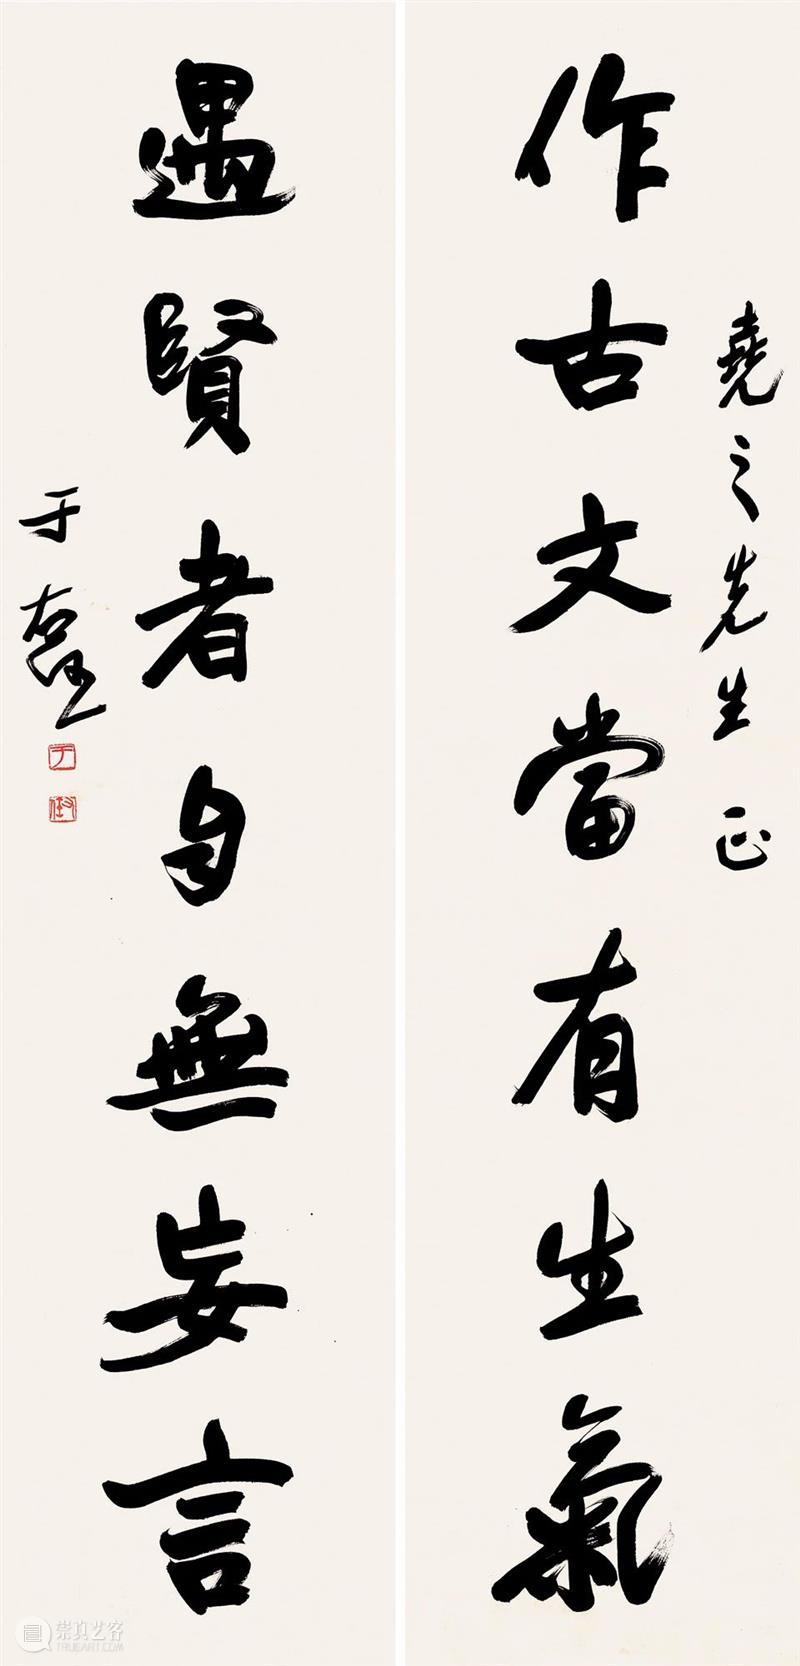 堯之先生正
作古文當有生氣
遇賢者自無妄言
于右任
于
崇真艺客
TRUEART.COM